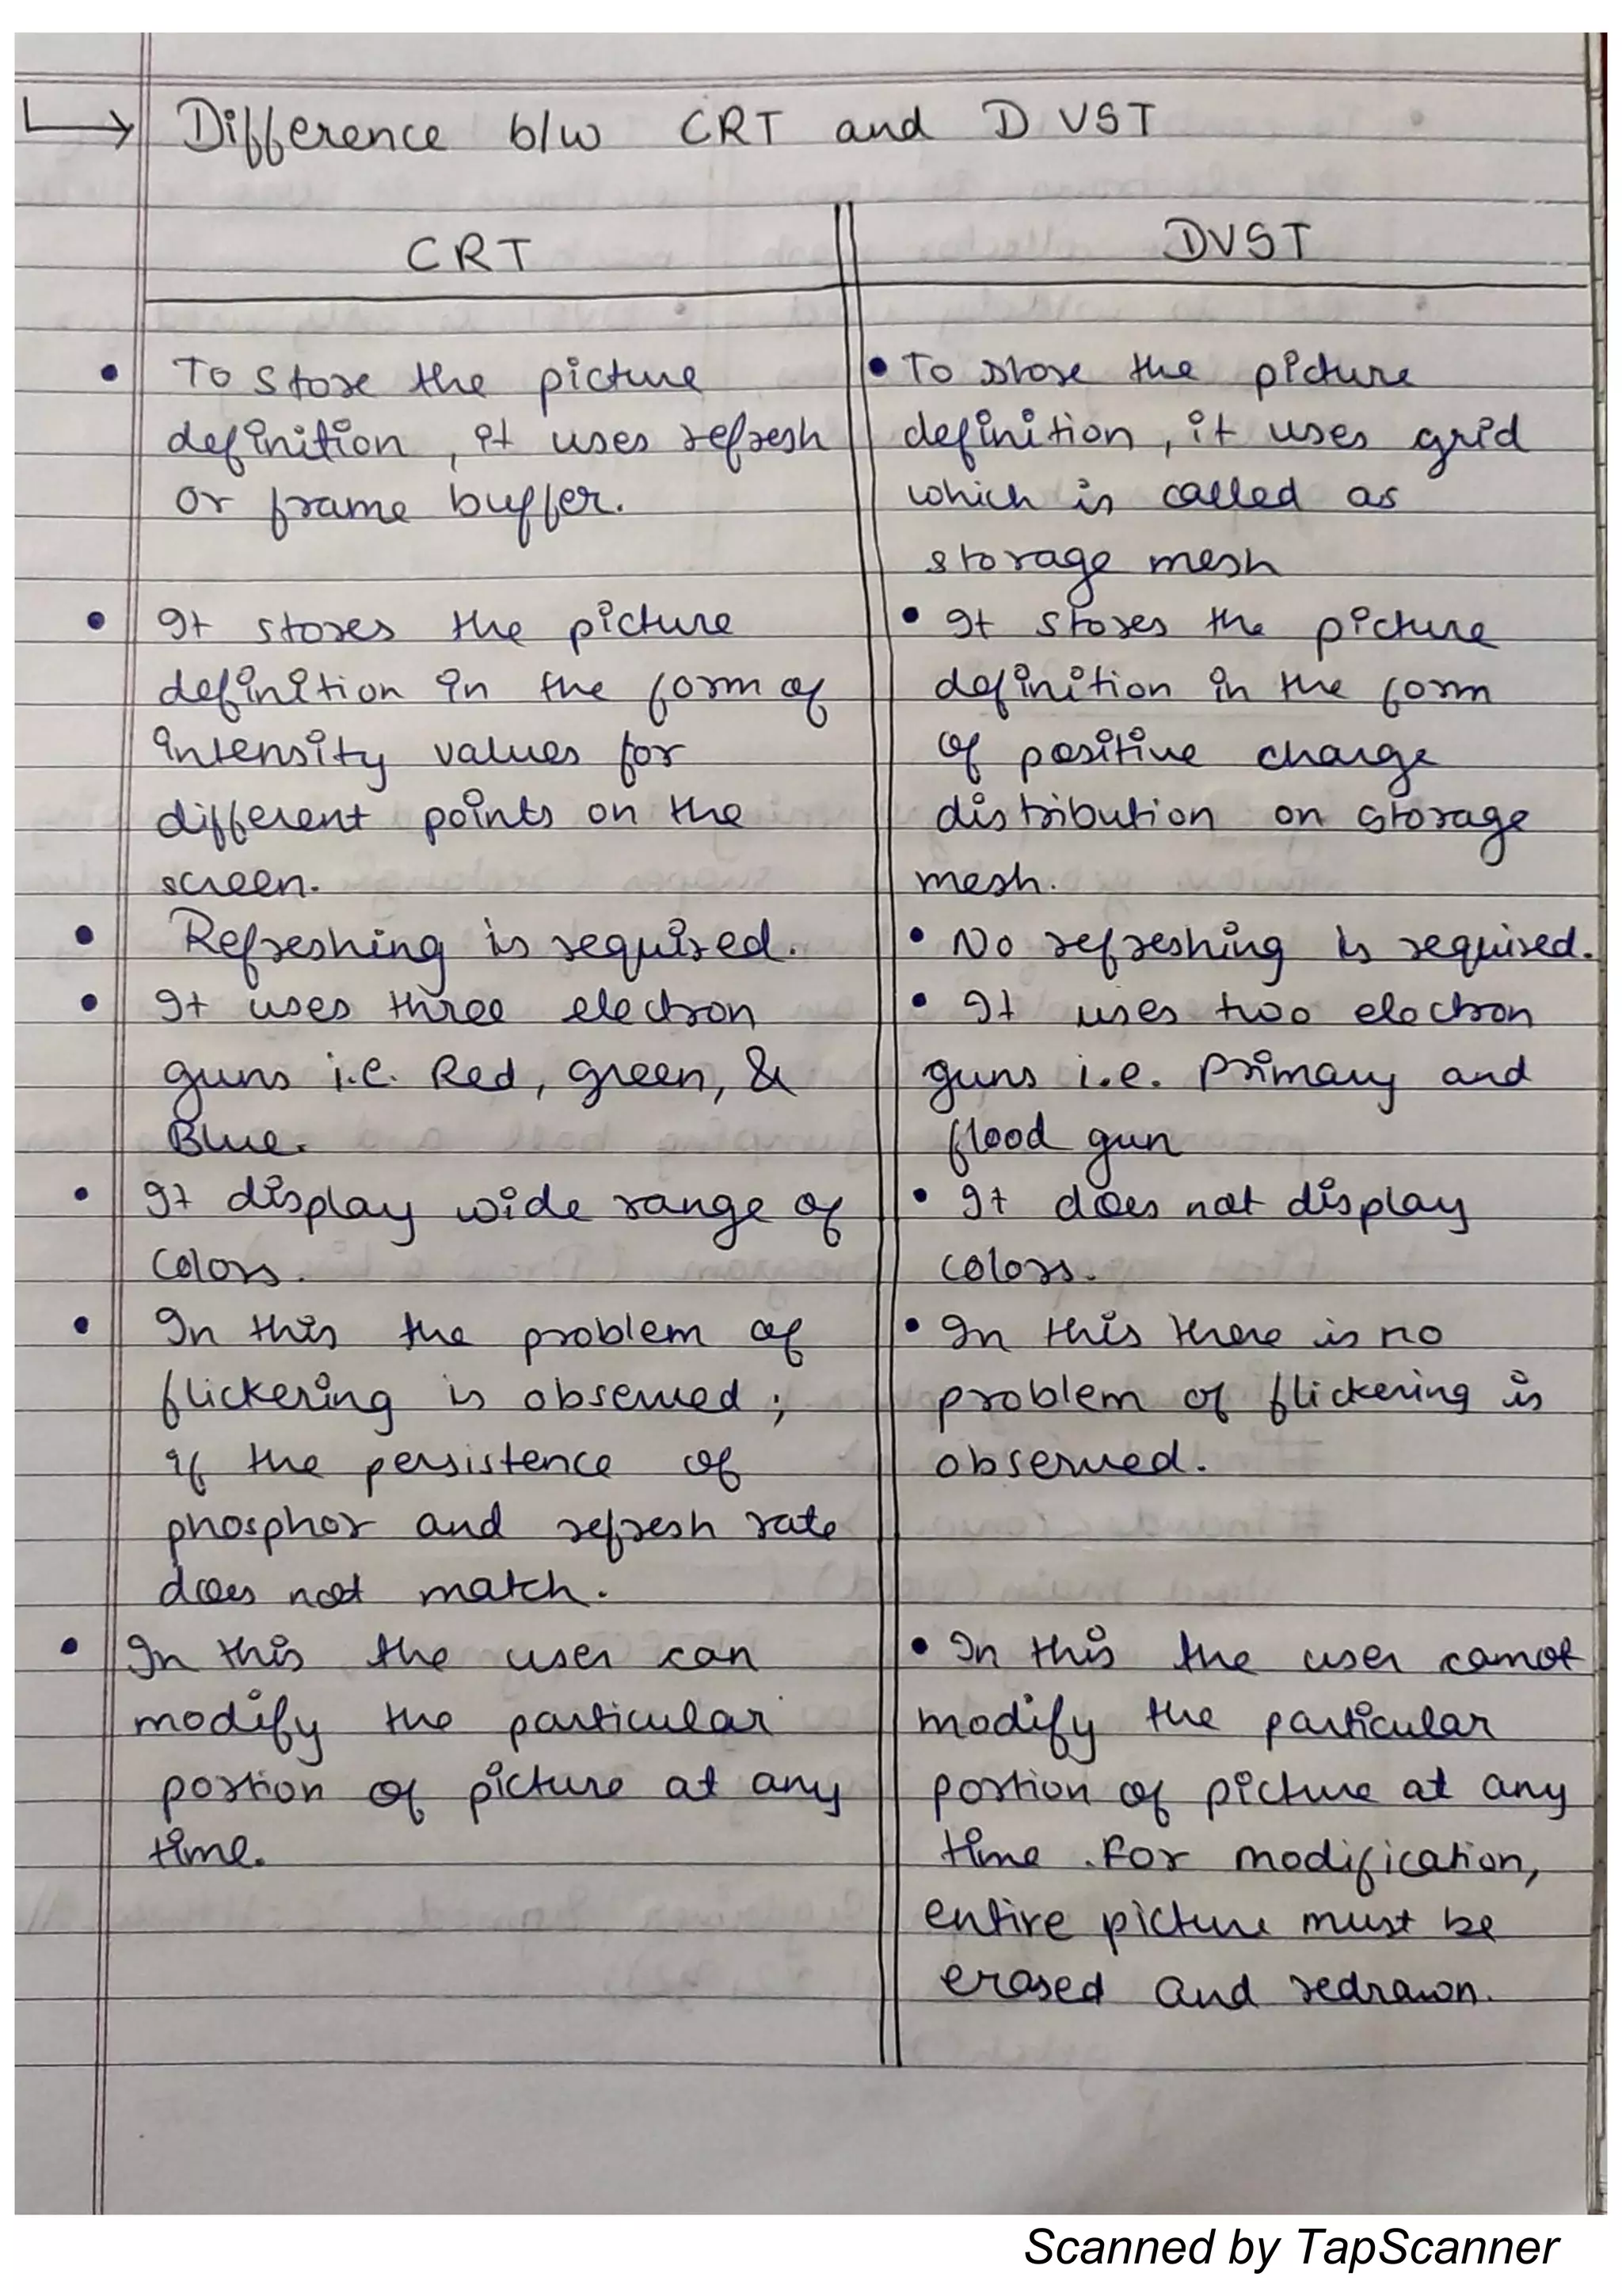 Difference b/w CRT and DVST
CRT
To store the picture
definition, it uses refresh
or frame buffer.
It stores the picture
definition in the form of
intensity values for
different points on the
screen.
Refreshing is required.
It uses three electron
guns i.e. Red, green, &
Blue.
It display wide range of
colors.
In this the problem of
flickering is observed;
if the persistence of
phosphor and refresh rate
does not match.
In this the user can
modify the particular
portion of picture at any
time.
DVST
To store the picture
definition, it uses grid
which is called as
storage mesh
It stores the picture
definition in the form
of positive charge
distribution on storage
mesh.
No refreshing is required.
It uses two electron
guns i.e. Primary and
flood gun
It does not display
colors.
In this there is no
problem of flickering is
observed.
In this the user cannot
modify the particular
portion of picture at any
time. For modification,
entire picture must be
erased and redrawn.
Scanned by TapScanner